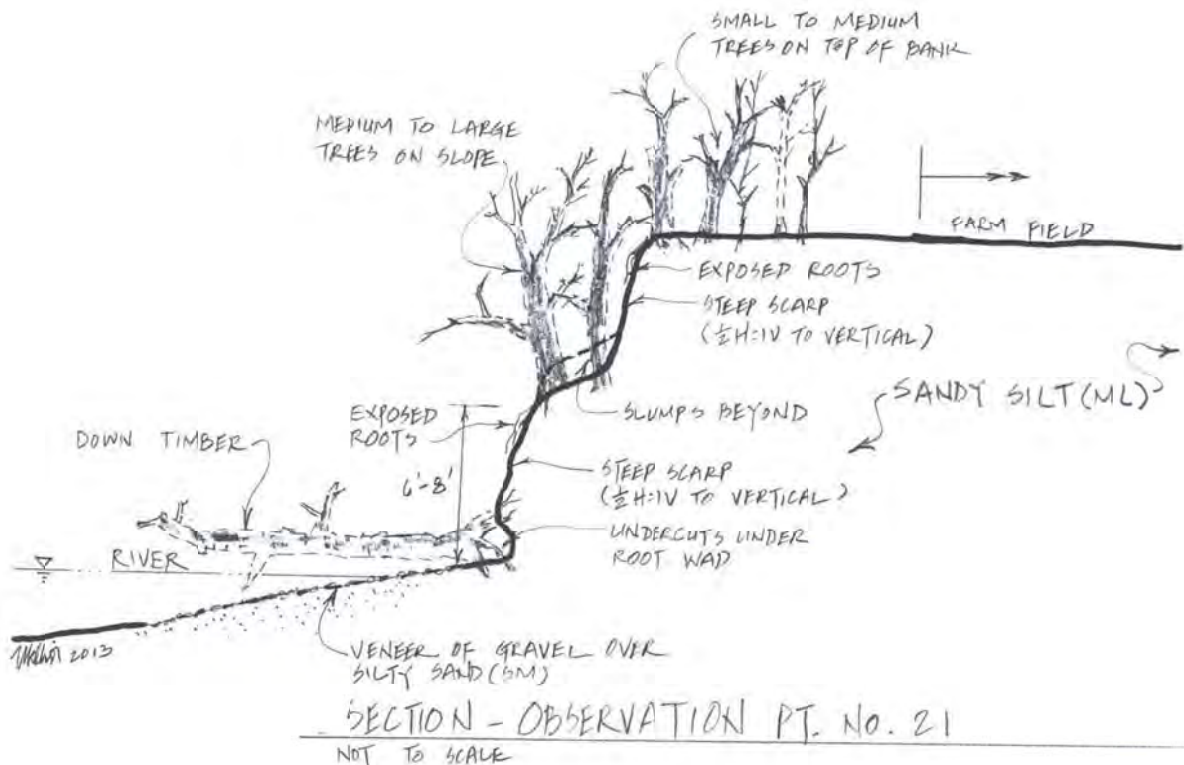 SMALL TO MEDIUM
TREES ON TOP OF BANK
MEDIUM TO LARGE
TREES ON SLOPE
FARM FIELD
EXPOSED ROOTS
STEEP SCARP
(½H:1V TO VERTICAL)
SANDY SILT (ML)
SLUMPS BEYOND
EXPOSED
ROOTS
DOWN TIMBER
6'-8'
STEEP SCARP
(½H:1V TO VERTICAL)
UNDERCUTS UNDER
ROOT WAD
RIVER
2013
VENEER OF GRAVEL OVER
SILTY SAND (SM)
SECTION - OBSERVATION PT. NO. 21
NOT TO SCALE